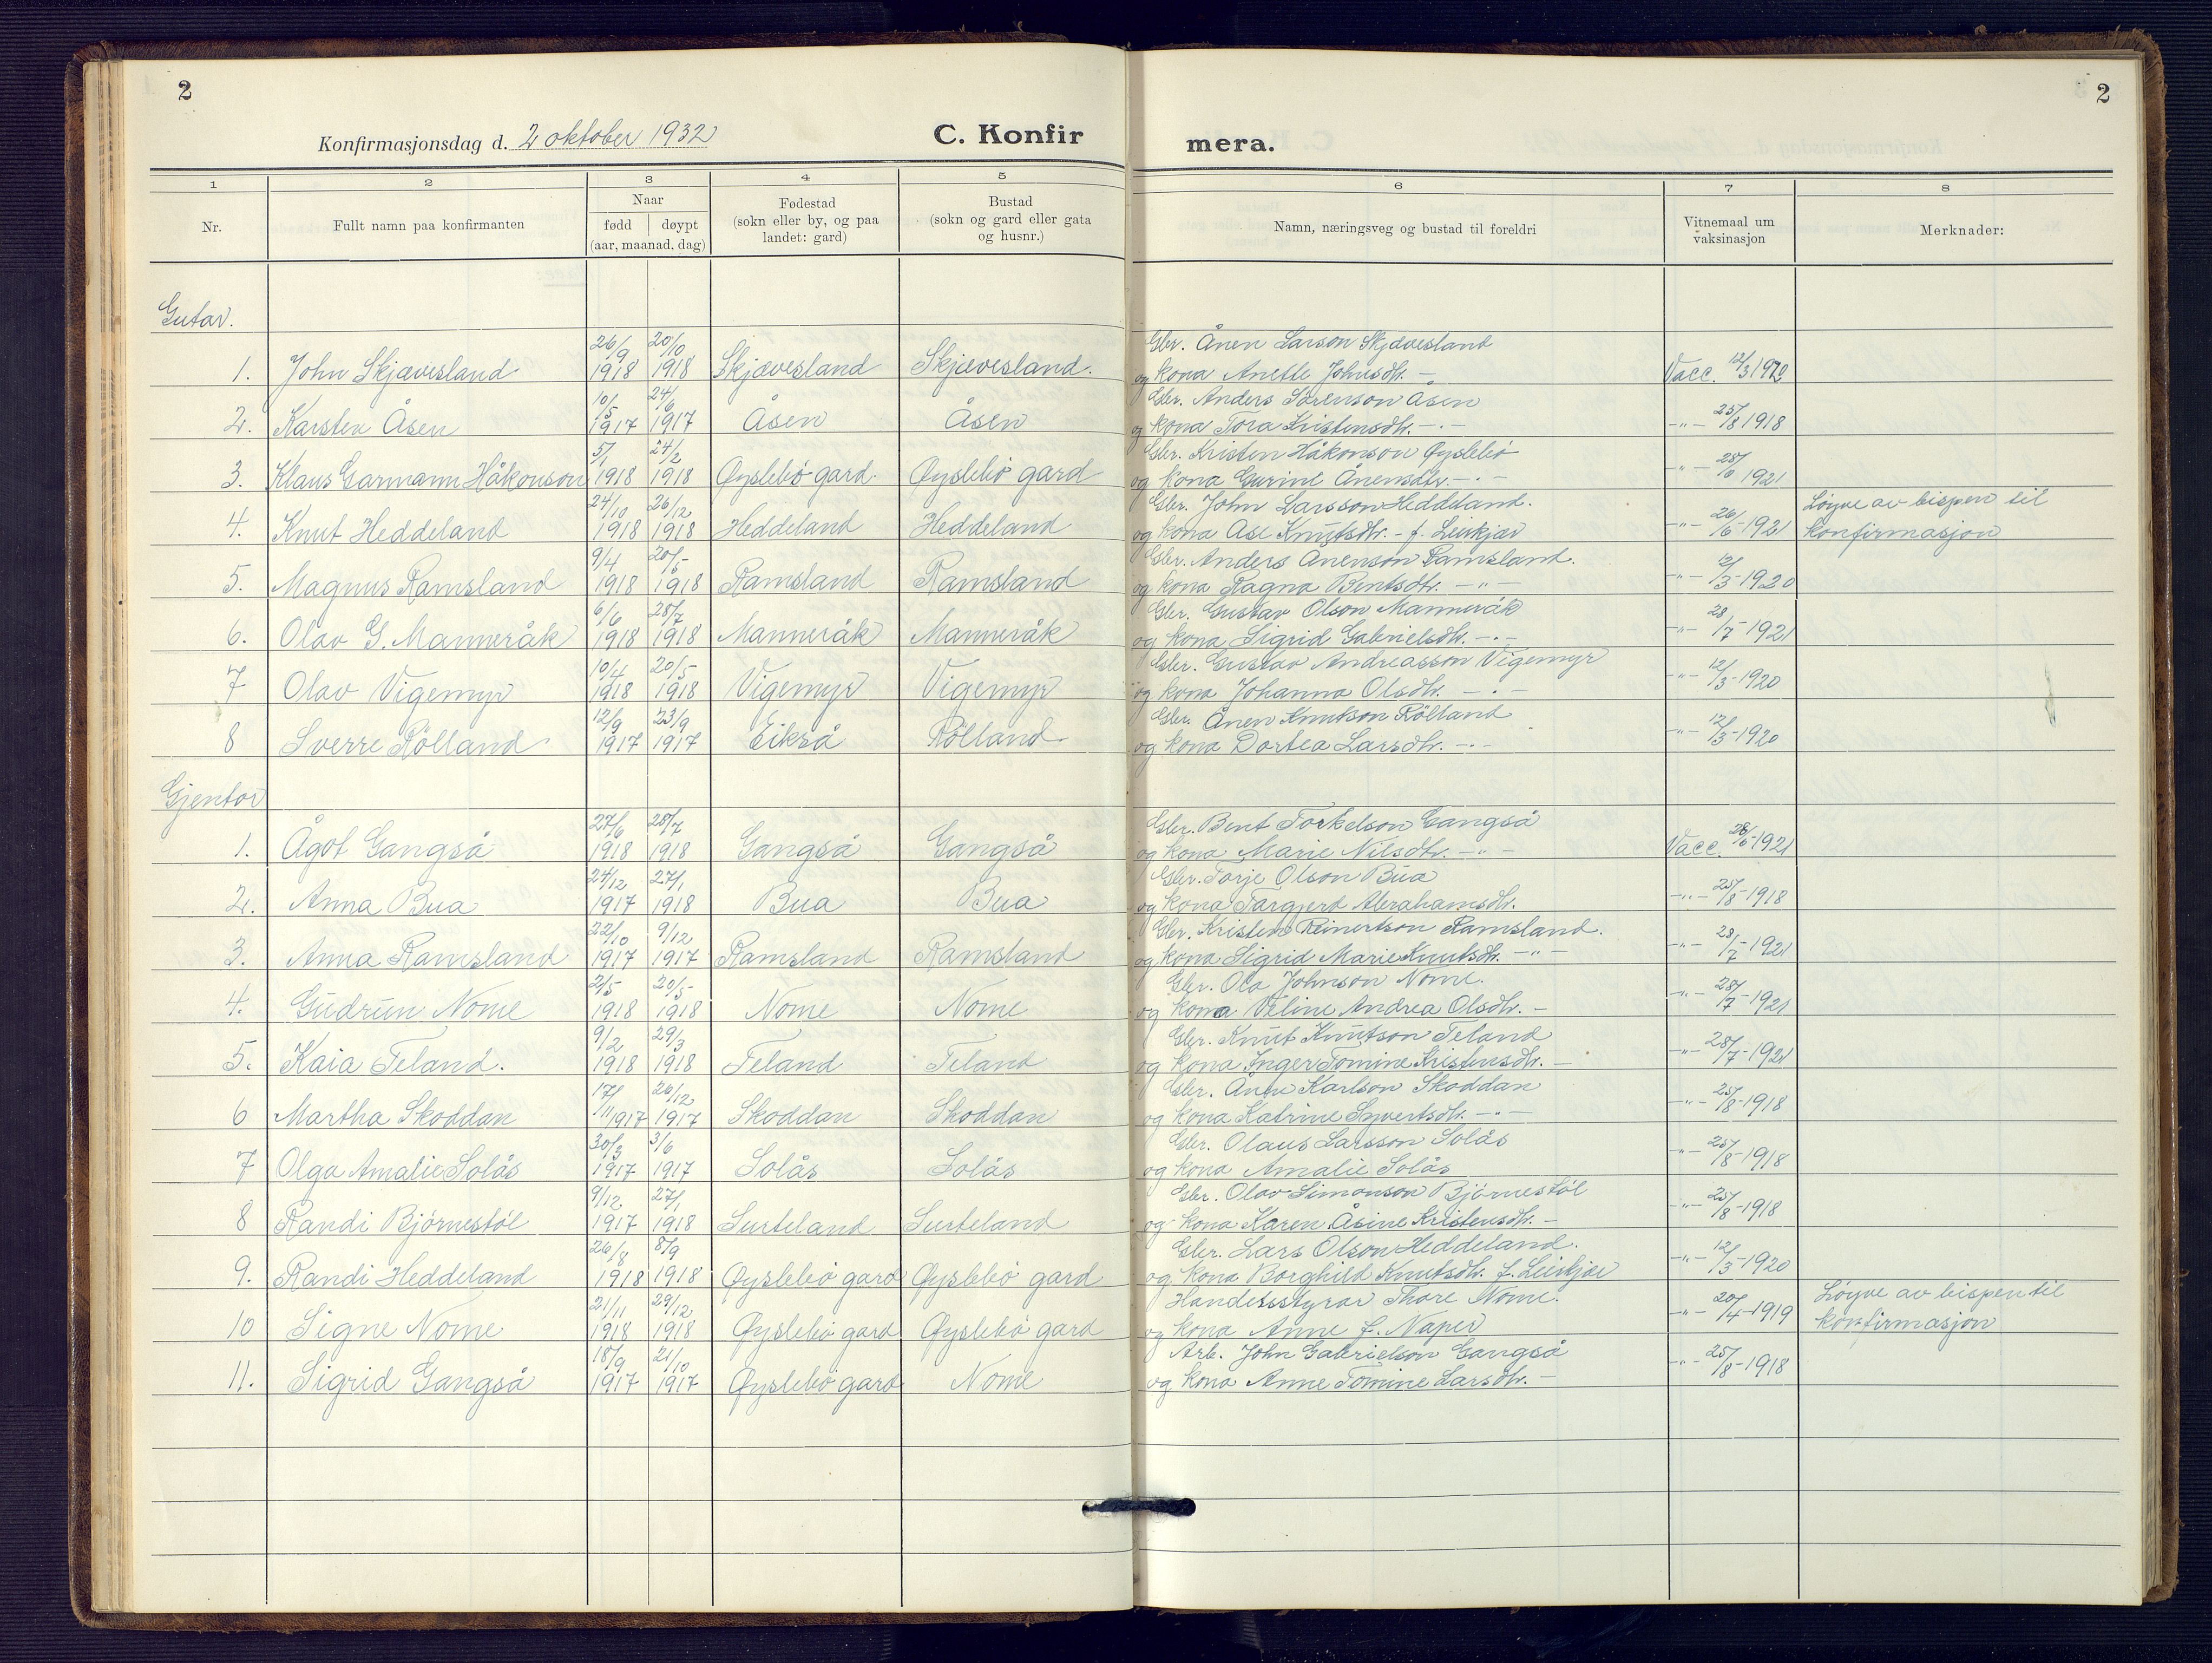 2
2
Konfirmasjonsdag d. 2 oktober 1932
C. Konfir
mera.
1 2 3 4 5 6 7 8
Nr.
Fullt namn paa konfirmanten
Naar
fødd døypt
(aar, maanad, dag)
Fødestad
(sokn eller by, og paa
landet: gard)
Bustad
(sokn og gard eller gata
og husnr.)
Namn, næringsveg og bustad til foreldri
Vitnemaal um
vaksinasjon
Merknader:
Gutar.
26/9 20/10 Gbr. Ånen Larson Skjævesland
1. John Skjævesland 1918 1918 Skjævesland Skjævesland. og kona Anette Johnsdtr. - Vacc. 12/3 1920
10/5 24/6 Gbr. Anders Sørenson Åsen
2. Karsten Åsen 1917 1917 Åsen Åsen og kona Tora Kristensdtr. -"- -"- 25/8 1918
5/1 24/2 Gbr. Kristen Håkonson Øyslebö
3. Klaus Garmann Håkonson 1918 1918 Øyslebö gard. Øyslebö gard og kona Gurine Ånensdtr. -"- -"- 1921
24/10 26/12 Gbr. John Larsson Heddeland. Løyve av bispen til
4. Knut Heddeland 1918 1918 Heddeland Heddeland og kona Åse Knutsdtr. - f. Leirkjær -"- 26/6 1921 konfirmasjon
9/4 20/5 Gbr. Anders Ånenson Ramsland.
5. Magnus Ramsland 1918 1918 Ramsland Ramsland og kona Ragna Bentsdtr. -"- -"- 12/3-1920
6/6 28/7 Gbr. Gustav Olson Manneråk
6. Olav G. Manneråk 1918 1918 Manneråk Manneråk og kona Sigrid Gabrielsdtr. -"- -"- 28/7-1921
10/4 20/5 Gbr. Gustav Andreasson Vigemyr
7 Olav Vigemyr 1918 1918 Vigemyr Vigemyr og kona Johanna Olsdtr. -"- -"- 12/3-1920
12/9 23/9 Gbr. Ånen Knutson Rölland
8 Sverre Rölland 1917 1917 Eikså Rölland og kona Dortea Larsdtr. -"- -"- 12/3-1920
Gjentor
27/6 28/7 Gbr. Bent Torkelson Gangså
1. Ågot Gangså 1918 1918 Gangså Gangså og kona Marie Nilsdtr. -"- Vacc. 28/6-1921
24/12 27/1 Gbr. Torje Olson Bua
2. Anna Bua 1917 1918 Bua Bua og kona Targjerd Abrahamsdtr. -"- 25/8-1918
22/10 9/12 Gbr. Kristen Reinertson Ramsland.
3. Anna Ramsland 1917 1917 Ramsland Ramsland og kona Sigrid Marie Knutsdtr. -"- -"- 28/7-1921
2/5 20/5 Gbr. Ola Johnson Nome.
4. Gudrun Nome 1918 1918 Nome Nome og kona Veline Andrea Olsdtr. - -"- 28/7-1921
9/2 29/3 Gbr. Knut Knutson Teland
5. Kaia Teland. 1918 1918 Teland Teland og kona Inger Tomine Kristensdtr. - -"- 28/7-1921
17/11 26/12 Gbr. Karlson Skoddan
6 Martha Skoddan 1917 1917 Skoddan Skoddan og kona Katrine Syvertsdtr. -"- -"- 25/8-1918
30/3 3/6 Gbr. Olaus Larsson Solås
7 Olga Amalie Solås 1917 1917 Solås Solås og kona Amalie Solås -"- 25/8-1918
9/12 27/1 Gbr. Olav Simonson Björnestöl
8 Randi Björnestöl 1917 1918 Surteland Surteland og kona Karen Åsine Kristensdtr. - -"- 25/8-1918
26/8 8/9 Gbr. Lars Olson Heddeland.
9. Randi Heddeland 1918 1918 Øyslebö gard Øyslebö gard og kona Borghild Knutsdtr. f. Leirkjær -"- 12/3-1920
21/11 29/12 Handelsstyrar Thore Nome. Løyve av bispen til
10 Signe Nome 1918 1918 Øyslebö gard Øyslebö gard og kona Anne f. Naper -"- 20/4-1919 konfirmasjon
18/9 21/10 Arb. John Gabrielson Gangså
11. Sigrid Gangså 1917 1917 Øyslebö gard Nome og kona Anne Tomine Larsdtr. - -"- 25/8-1918